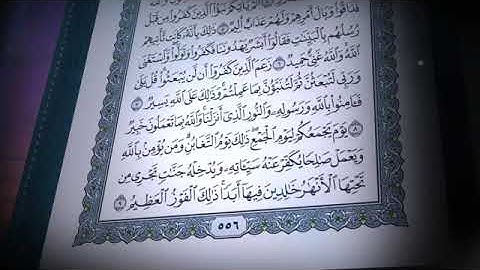 فَذَاقُوا۟ وَبَالَ أَمْرِهِمْ وَلَهُمْ عَذَابٌ أَلِيمٌ
رُسُلُهُم بِٱلْبَيِّنَـٰتِ فَقَالُوٓا۟ أَبَشَرٌ يَهْدُونَنَا فَكَفَرُوا۟ وَتَوَلَّوا۟ وَّٱسْتَغْنَى
ٱللَّهُ وَٱللَّهُ غَنِىٌّ حَمِيدٌ ٦ زَعَمَ ٱلَّذِينَ كَفَرُوٓا۟ أَن لَّن يُبْعَثُوا۟ قُلْ بَلَىٰ
وَرَبِّى لَتُبْعَثُنَّ ثُمَّ لَتُنَبَّؤُنَّ بِمَا عَمِلْتُمْ وَذَٰلِكَ عَلَى ٱللَّهِ يَسِيرٌ ٧
فَـَٔامِنُوا۟ بِٱللَّهِ وَرَسُولِهِۦ وَٱلنُّورِ ٱلَّذِىٓ أَنزَلْنَا وَٱللَّهُ بِمَا تَعْمَلُونَ خَبِيرٌ
٨ يَوْمَ يَجْمَعُكُمْ لِيَوْمِ ٱلْجَمْعِ ذَٰلِكَ يَوْمُ ٱلتَّغَابُنِ وَمَن يُؤْمِنۢ بِٱللَّهِ
وَيَعْمَلْ صَـٰلِحًا يُكَفِّرْ عَنْهُ سَيِّـَٔاتِهِۦ وَيُدْخِلْهُ جَنَّـٰتٍ تَجْرِى مِن
تَحْتِهَا ٱلْأَنْهَـٰرُ خَـٰلِدِينَ فِيهَآ أَبَدًا ذَٰلِكَ ٱلْفَوْزُ ٱلْعَظِيمُ ٩
٥٥٦